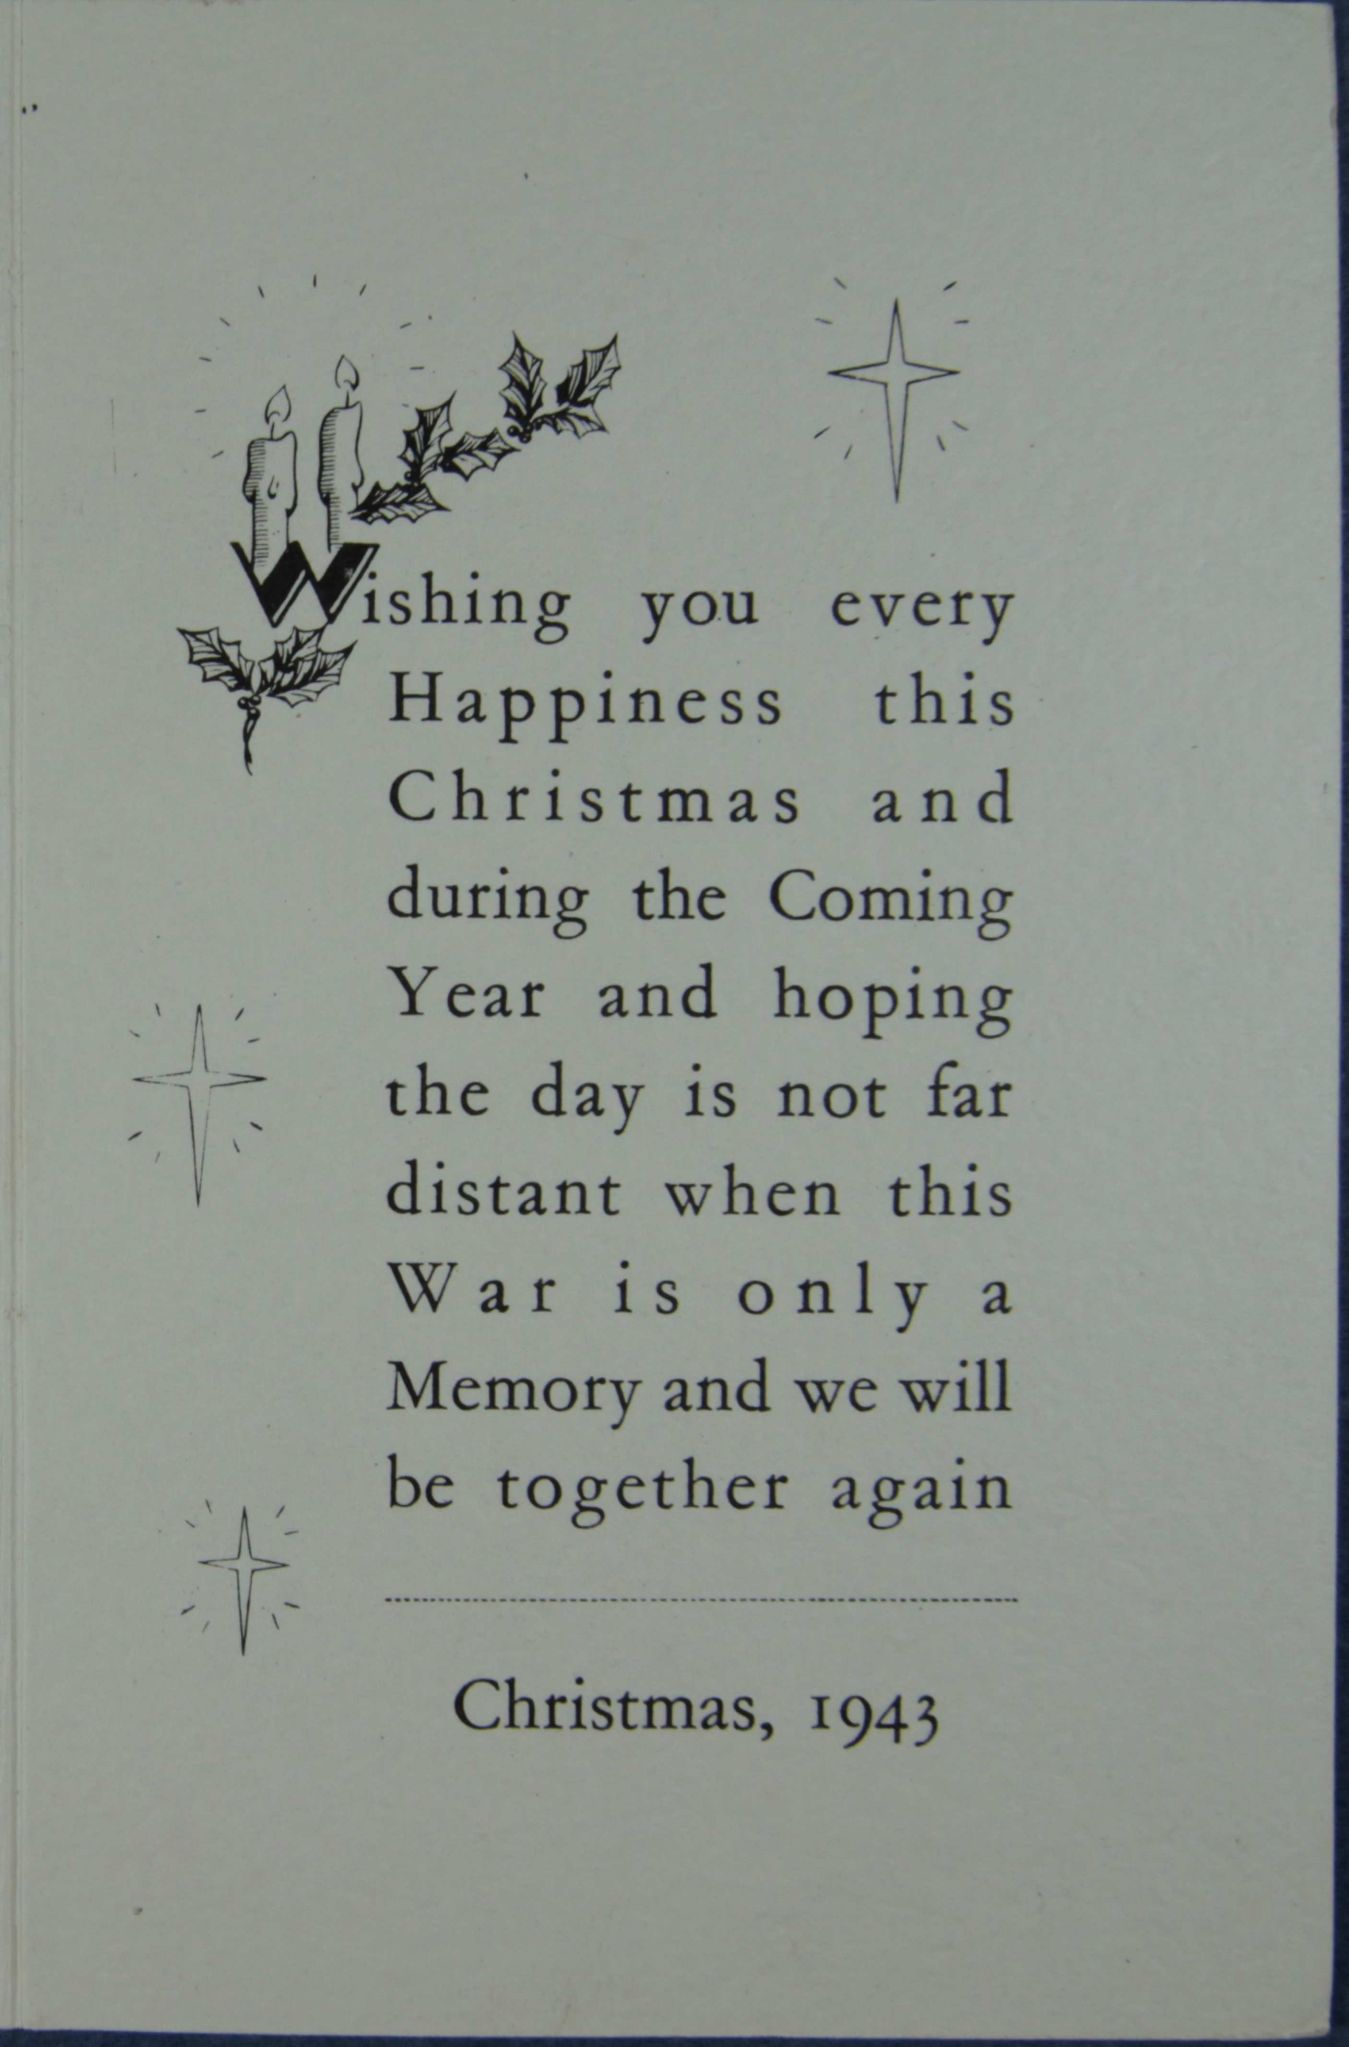 Wishing you every
Happiness this
Christmas and
during the Coming
Year and hoping
the day is not far
distant when this
War is only a
Memory and we will
be together again
Christmas, 1943